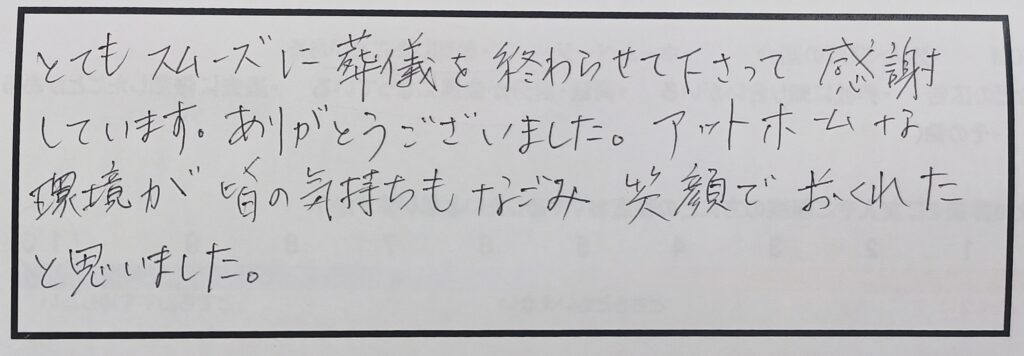 とてもスムーズに葬儀を終わらせて下さって感謝
しています。ありがとうございました。アットホームな
環境が皆の気持ちもなごみ笑顔でおくれた
と思いました。